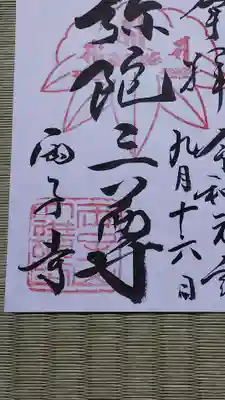 奉拝 令和元年
九月十六日
弥陀三尊
雨子寺